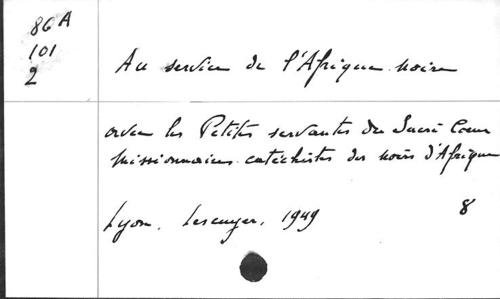 86 A
101
2
Au service de l'Afrique noire
avec les Petites servantes du Sacré Coeur
Missionnaires catéchistes des noirs d'Afrique
Lyon, Lescuyer, 1949 8